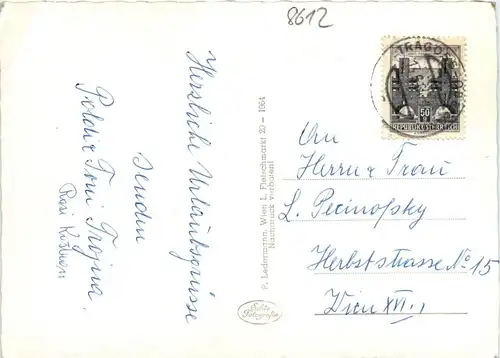 8612
Herzliche Urlaubsgrüsse
senden
Poldi & Toni
Rosi
P. Ledermann, Wien I., Fleischmarkt 20 – 1964
Nachdruck verboten!
Echte
Fotografie
TRAGÖ
50
REPUBLIK ÖSTERREICH
An
Herrn u. Frau
L. Pecinofsky
Herbststrasse No 15
Wien XVI.,